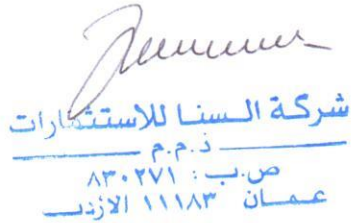 شركة السنا للاستثمارات
ذ.م.م
ص.ب : ٨٣٠٢٧١
عمان ١١١٨٣ الأردن